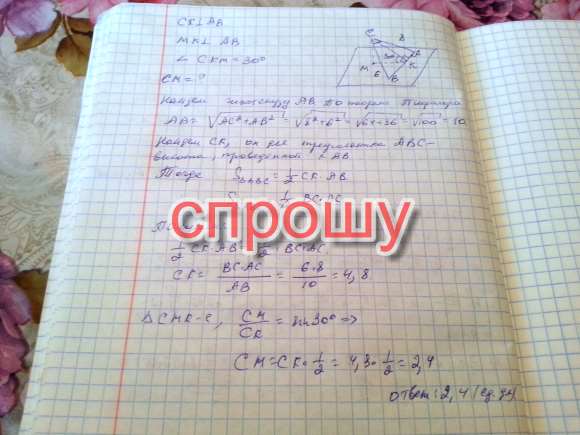 CK⊥AB
MK⊥AB
∠ CKM = 30°
CM = ?
Найдем гипотенузу AB по теореме Пифагора
AB = √AC²+AB² = √8²+6² = √64+36 = √100 = 10
Найдем CK, он для треугольника ABC -
высота, проведенной к AB
Тогда S ABC = 1/2 CK·AB
S 1/ BC·AC
спрошу
1/2 CK·AB = 1/2 · BC·AC
CK = BC·AC / AB = 6·8 / 10 = 4,8
△CMK-C, CM/CK = sin30° =>
CM = CK · 1/2 = 4,8 · 1/2 = 2,4
ответ: 2,4 (ед. дл)